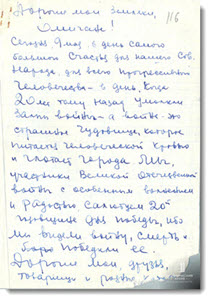 Дорогие мои земляки,
116
Омичане!
Сегодня, 9 мая, в день самого
большого счастья для нашего Сов.
Народа, для всего прогрессивн.
Человечества - в день, когда
20 лет тому назад умолкли
залпы войны - а война - это
страшное чудовище, которое
питается человеческой кровью
и глотает города. Мы,
участники Великой Отечественной
войны с особенным волнением
и радостью салютуем 20
годовщине дня победы, ибо
мы видели войну, смерть
победили её.
Дорогие мои друзья,
товарищи и